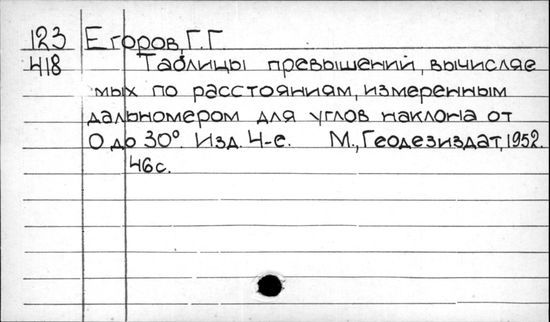 123 Егоров, Г. Г
418 Таблицы превышений, вычисляе
мых по расстояниям, измеренным
дальномером для углов наклона от
0 до 30° Изд. 4-е. М., Геодезиздат, 1952.
46с.